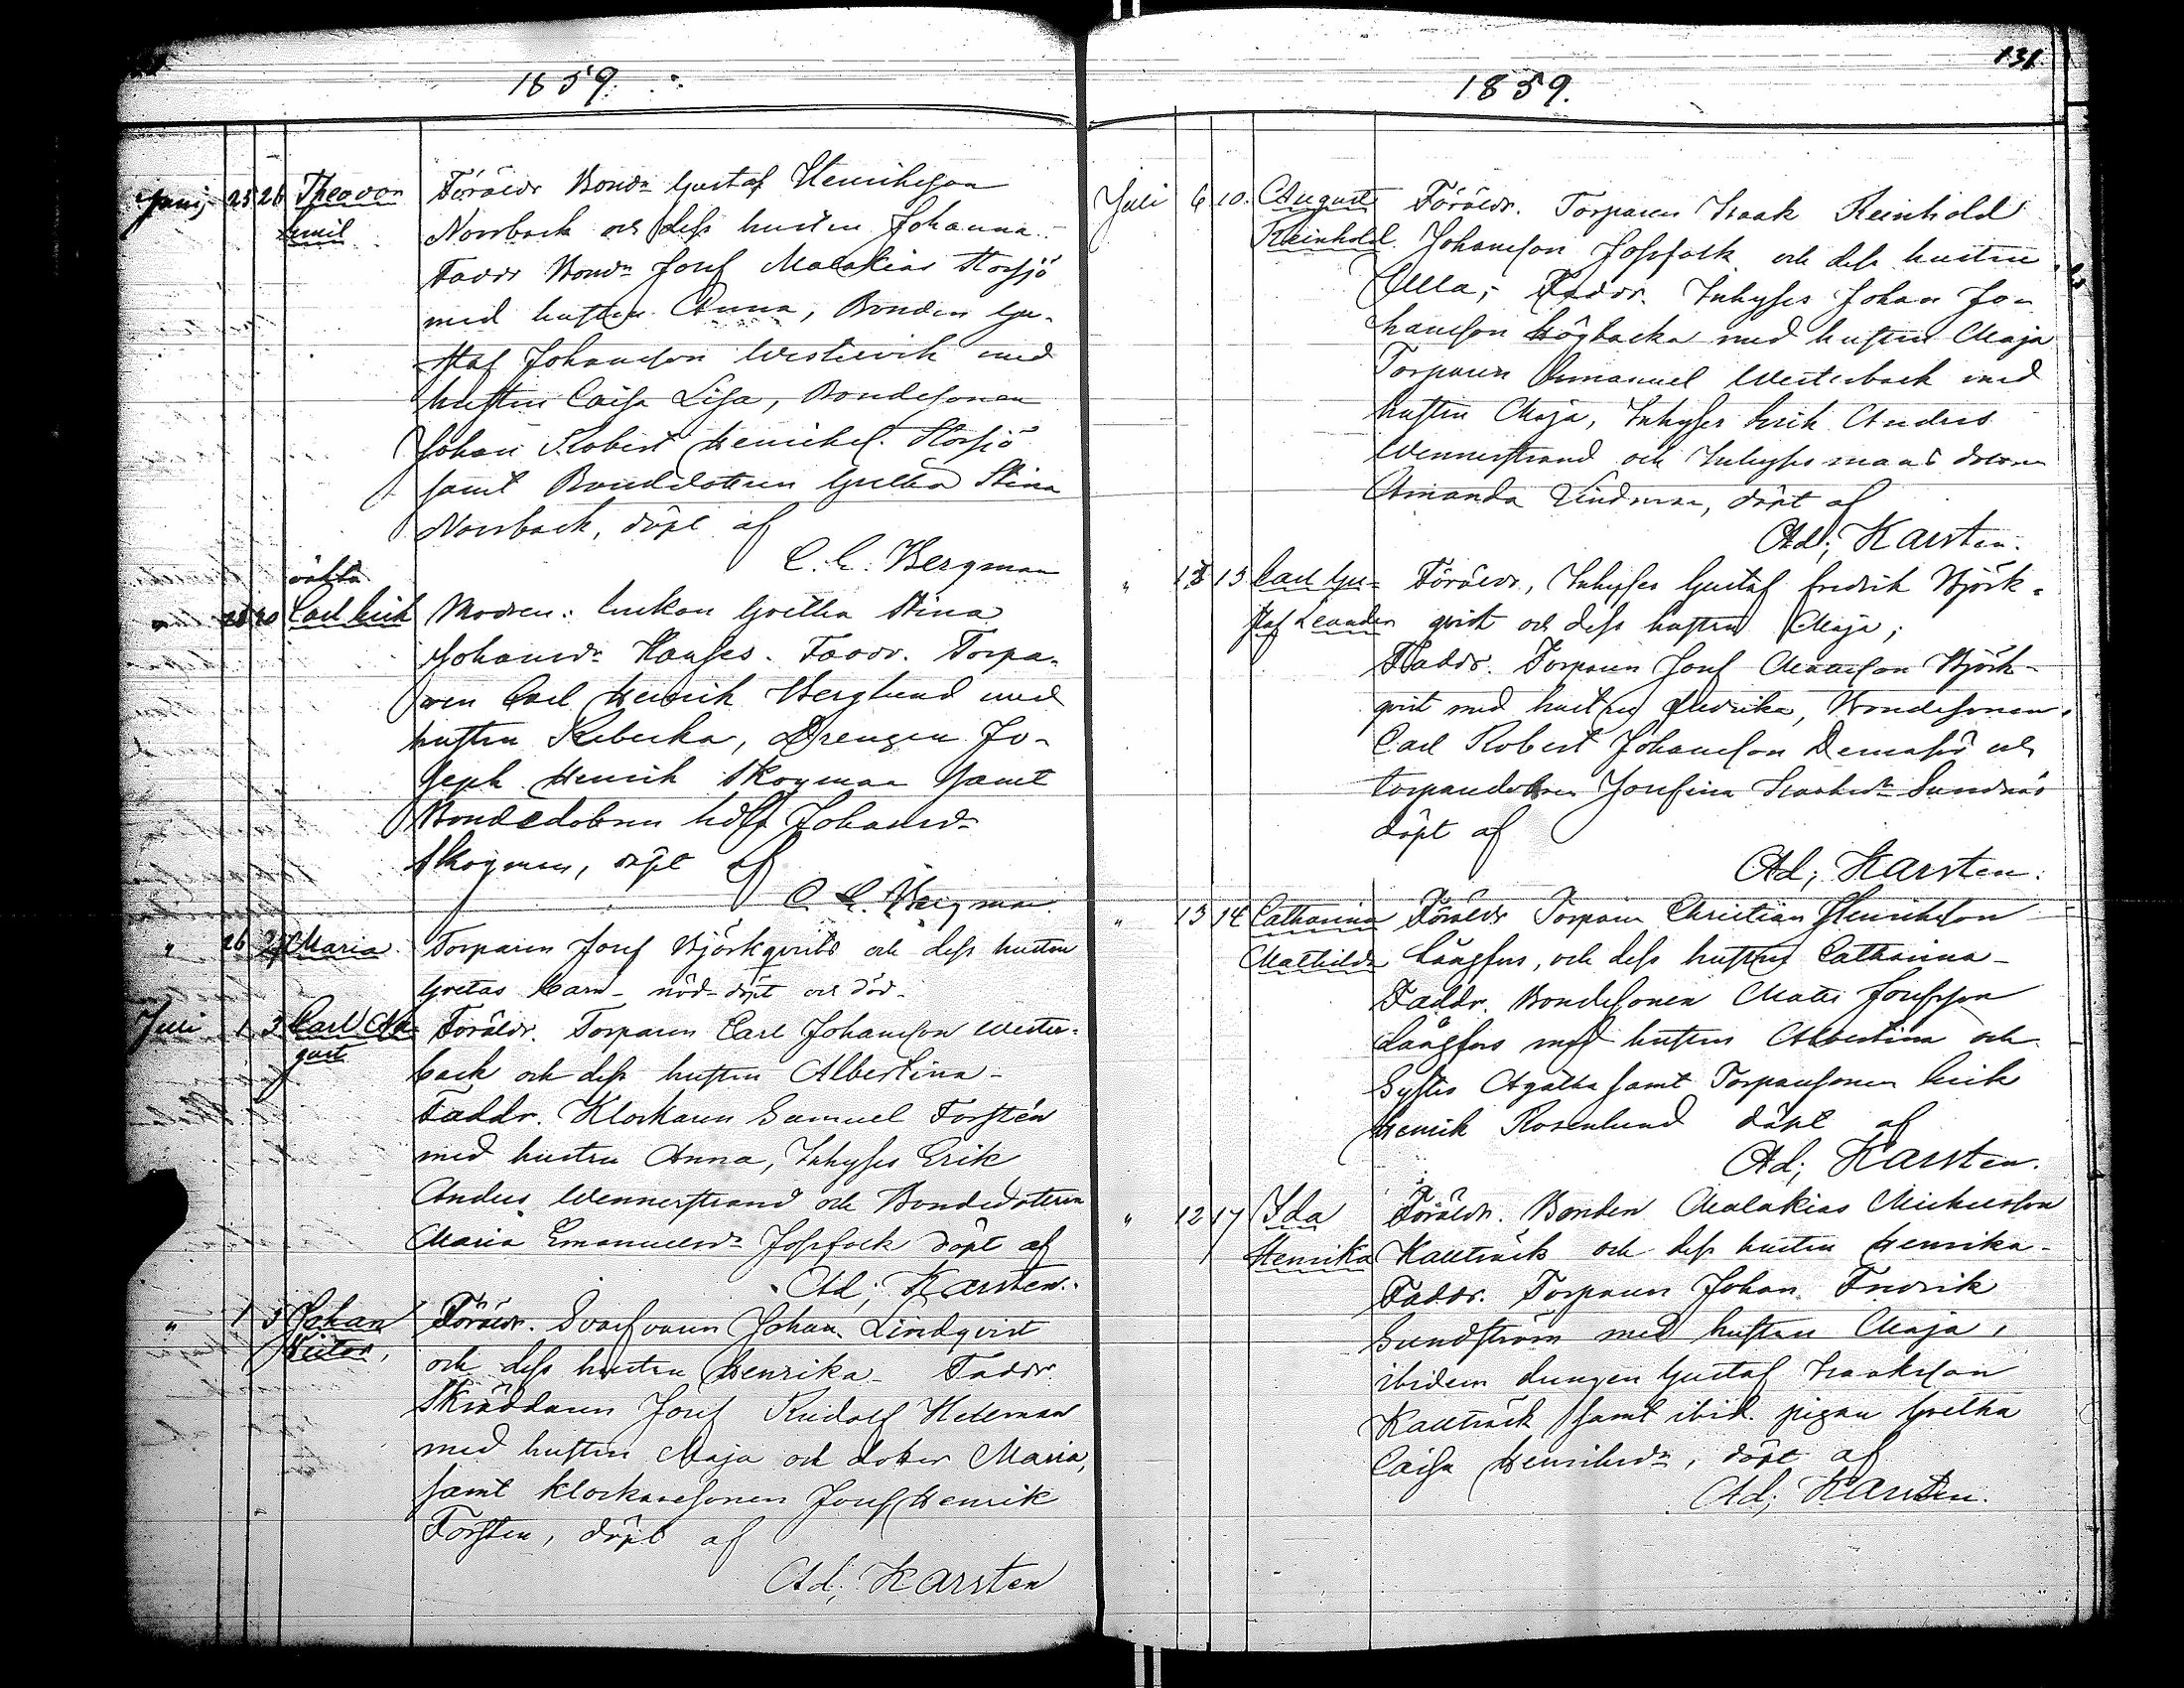 1859.
Junij 25 26 Theodor Föräldr Bondn Gustaf Henrikson
Emil Norrback och dess hustru Johanna.
Faddr Bondn Josef Malakias Storsjö
med hustru Anna, Bonden Gu-
staf Johansson Westervik med
hustru Caisa Lisa, Bondesonen
Johan Robert Henriks. Storsjö
samt Bondedottren Gretha Stina
Norrback, döpt af
C. E. Bergman
oäkta
" Carl Erik Modren: Enkan Gretha Stina
Johansdr Kanses. Faddr. Torpa-
ren Carl Henrik Berglund med
hustru Rebecka, Drengen Jo-
seph Henrik Skogman samt
Bondedottren Johansdr
Skogman, döpt af
C. E. Bergman
" 26 Maria Torparen Josef Björkqvists och dess hustru
Gretas barn - nöd-döpt och död.
Juli 1 3 Carl Au- Föräldr. Torparen Carl Johansson Wester-
gust back och dess hustru Albertina-
Faddr. Klockaren Samuel Forstén
med hustru Anna, Inhyses Erik
Anders Wennerstrand och Bondedottren
Maria Emanuelsdr Jossfolk döpt af
Ad; Karsten.
" 1 3 Johan Föräldr. Svarfvaren Johan Lindqvist
Victor, och dess hustru Henrika- Faddr
Skräddaren Josef Rudolf Hellman
med hustru Maja och dotter Maria,
samt klockaresonen Josef Henrik
Forsten, döpt af
Ad; Karsten
131
1859.
Juli 6 10. August Föräldr. Torparen Isaak Reinhold
Reinhold Johansson Jossfolk och dess hustru
Ulla; Faddr. Inhyses Johan Jo-
hansson Högbacka med hustru Maja
Torparen Emanuel Westerback med
hustru Maja, Inhyses Erik Anders
Wennerstrand och Inhysesmans dottren
Amanda Lindman, döpt af
Ad; Karsten.
" 13 Carl Gu- Föräldr, Inhyses Gustaf Fredrik Björk-
staf Leander qvist och dess hustru Maja;
Faddr. Torparen Josef Mattsson Björk-
qvist med hustru Fredrika, Bondesonen
Carl Robert Johansson och
torparedottren Josefina Isaksdr Sundnäs
döpt af
Ad; Karsten.
" 13 14 Catharina Föräldr Torparen Christian Henrikson
Mathilda Långfors, och dess hustru Catharina-
Faddr. Bondesonen Matts Josefsson
Långfors med hustru Albertina och
Syster Agatha samt Torparesonen Erik
Henrik Rosenlund döpt af
Ad; Karsten.
" 12 17 Ida Föräldr. Bonden Malakias Michelsson
Henrika Kallträsk och dess hustru Henrika-
Faddr. Torparen Johan Fredrik
Sundström med hustru Maja,
ibidem drengen Gustaf Isaksson
Kallträsk samt ibid. pigan Gretha
Caisa Henriksdr, döpt af
Ad; Karsten.